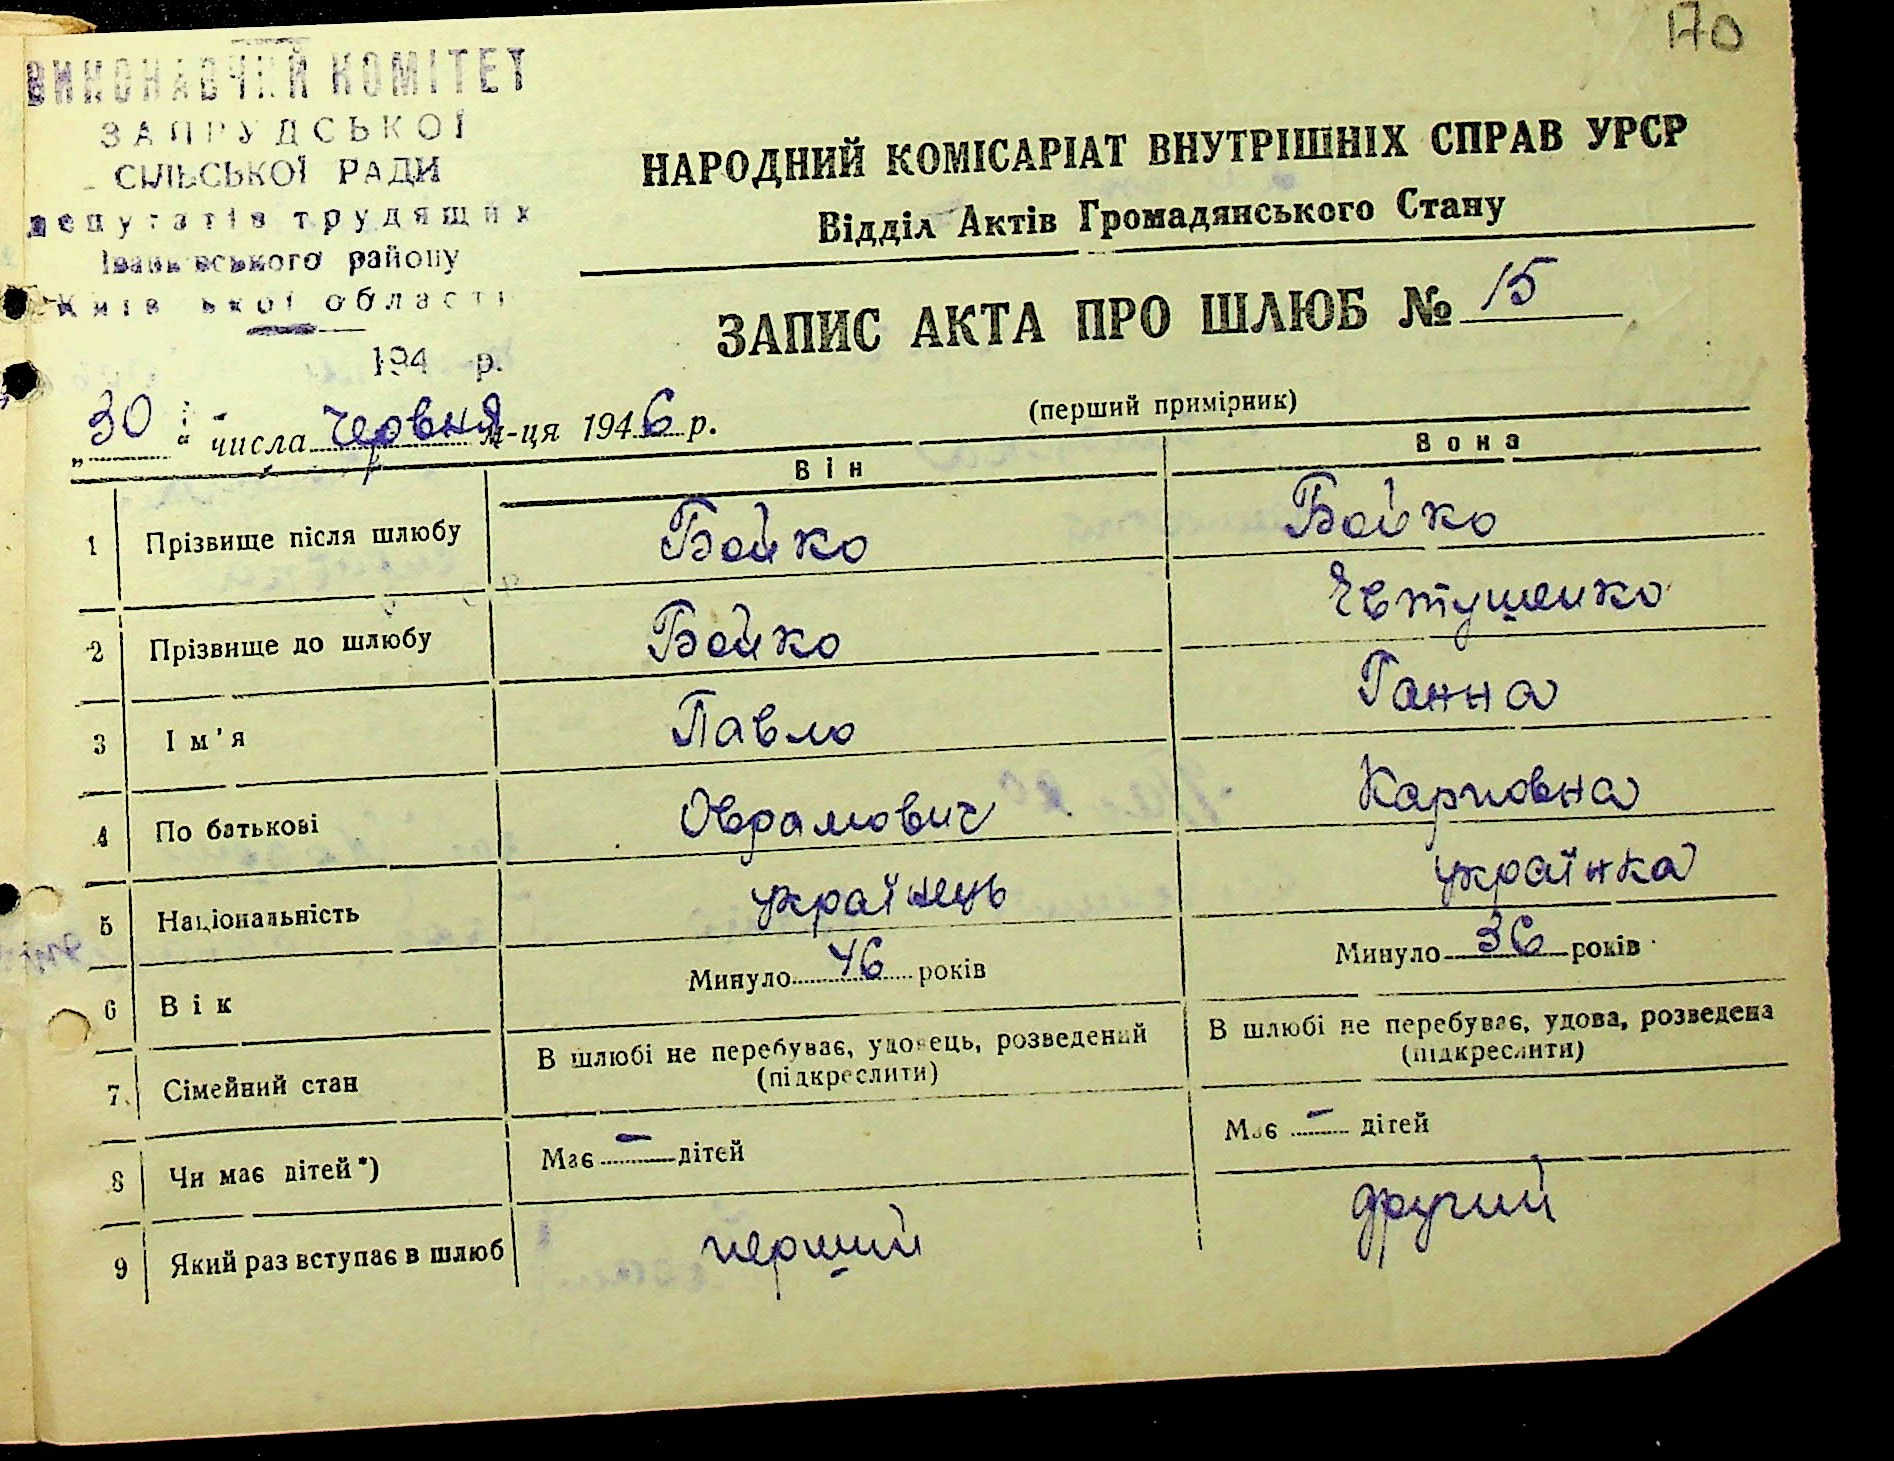 170
ВИКОНАВЧИЙ КОМІТЕТ
ЗАПРУДСЬКОЇ
СІЛЬСЬКОЇ РАДИ
депутатів трудящих
Іванківського району
Київської області
194 р.
НАРОДНИЙ КОМІСАРІАТ ВНУТРІШНІХ СПРАВ УРСР
Відділ Актів Громадянського Стану
ЗАПИС АКТА ПРО ШЛЮБ № 15
„30“ числа червня м-ця 1946 р.
(перший примірник)
Він Вона
1 Прізвище після шлюбу Бойко Бойко
2 Прізвище до шлюбу Бойко Євтушенко
3 Ім'я Павло Ганна
4 По батькові Оврамович Карповна
5 Національність українець українка
6 Вік Минуло 46 років Минуло 36 років
7 Сімейний стан В шлюбі не перебуває, удовець, розведений (підкреслити) В шлюбі не перебуває, удова, розведена (підкреслити)
8 Чи має дітей*) Має – дітей Має – дітей
9 Який раз вступає в шлюб перший другий